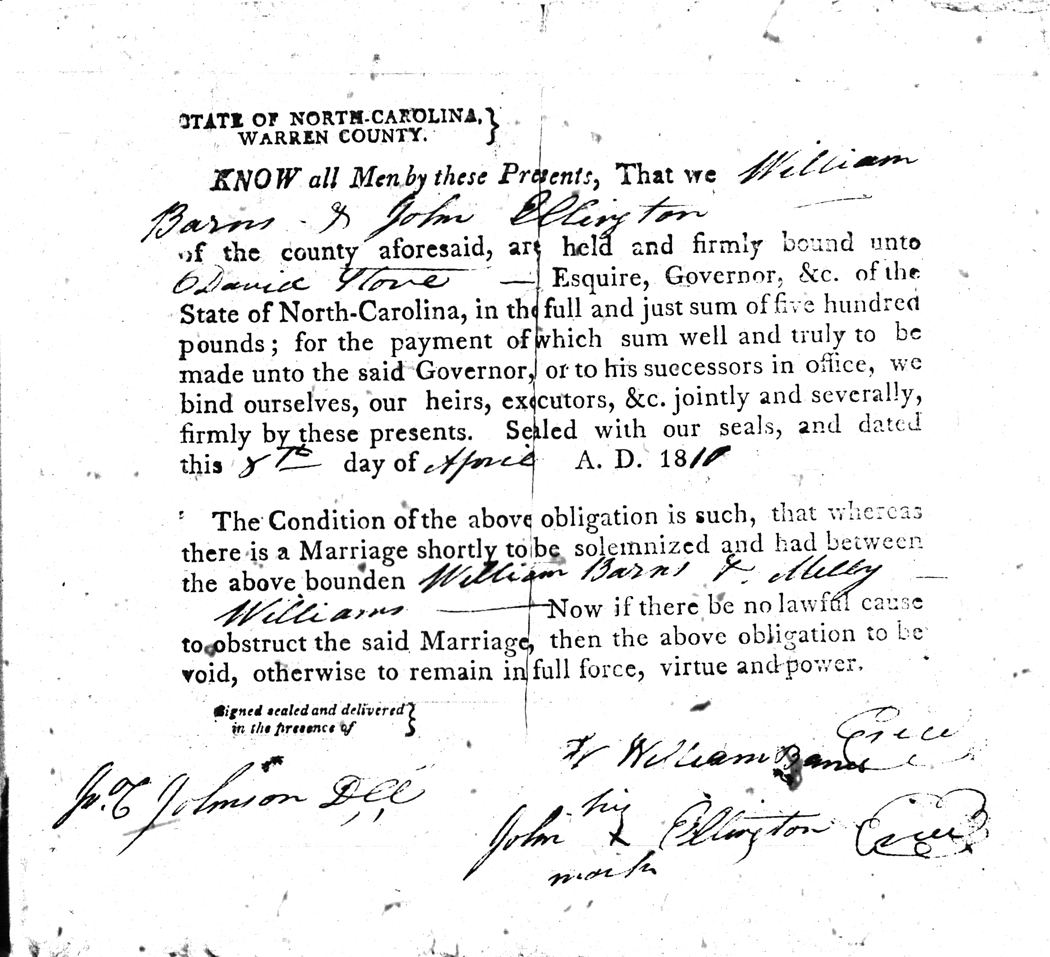 STATE OF NORTH-CAROLINA,
WARREN COUNTY.
KNOW all Men by these Presents, That we William
Barns & John Ellington
of the county aforesaid, are held and firmly bound unto
David Stone — Esquire, Governor, &c. of the
State of North-Carolina, in the full and just sum of five hundred
pounds; for the payment of which sum well and truly to be
made unto the said Governor, or to his successors in office, we
bind ourselves, our heirs, executors, &c. jointly and severally,
firmly by these presents. Sealed with our seals, and dated
this 8th day of April A. D. 1810
The Condition of the above obligation is such, that whereas
there is a Marriage shortly to be solemnized and had between
the above bounden William Barns & Milly —
Williams — Now if there be no lawful cause
to obstruct the said Marriage, then the above obligation to be
void, otherwise to remain in full force, virtue and power.
Signed sealed and delivered
in the presence of
William Barns
Johnson
his
John x Ellington
mark